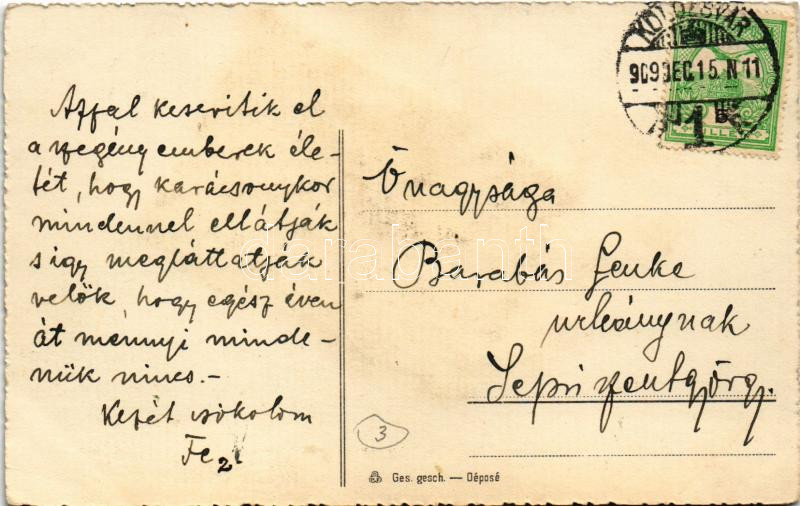 Azzal keserítik el
a szegény emberek éle-
tét, hogy karácsonykor
mindennel ellátják
s így megláttatják
velök, hogy egész éven
át mennyi minde-
nük nincs.-
Kezét csókolom
Önagysága
Barabás Lenke
urleánynak
Sepsi szentgyörgy.
KOLOZSVÁR
909 DEC. 15. N 11
1
3
Ges. gesch. — Déposé
darabanth